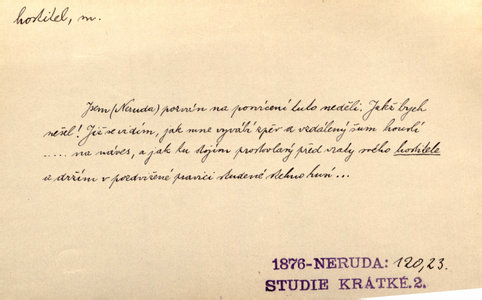 hostitel, m.
Jsem (Neruda) pozván na posvícení tuto neděli. Jakž bych
nešel! Již se vidím, jak mne vyvádí zpěv a vzdálený šum houslí
..... na náves, a jak tu stojím prostovlasý před vraty svého hostitele
a držím v pozdvižené pravici studené stehno husí ...
1876-NERUDA: 120,23.
STUDIE KRÁTKÉ.2.